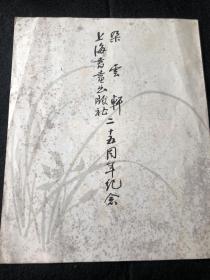 朵雲軒
上海書畫出版社二十五周年纪念